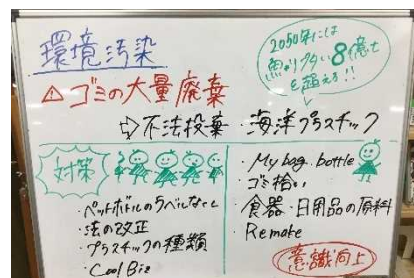 環境汚染
2050年には
魚より多い8億t
を超える!!
⚠ゴミの大量廃棄
⇨不法投棄 海洋プラスチック
対策
・ペットボトルのラベルなくし
・法の改正
・プラスチックの種類
・Cool Biz
・My bag. bottle
・ゴミ拾い
・食器・日用品の原料
・Remake
意識向上